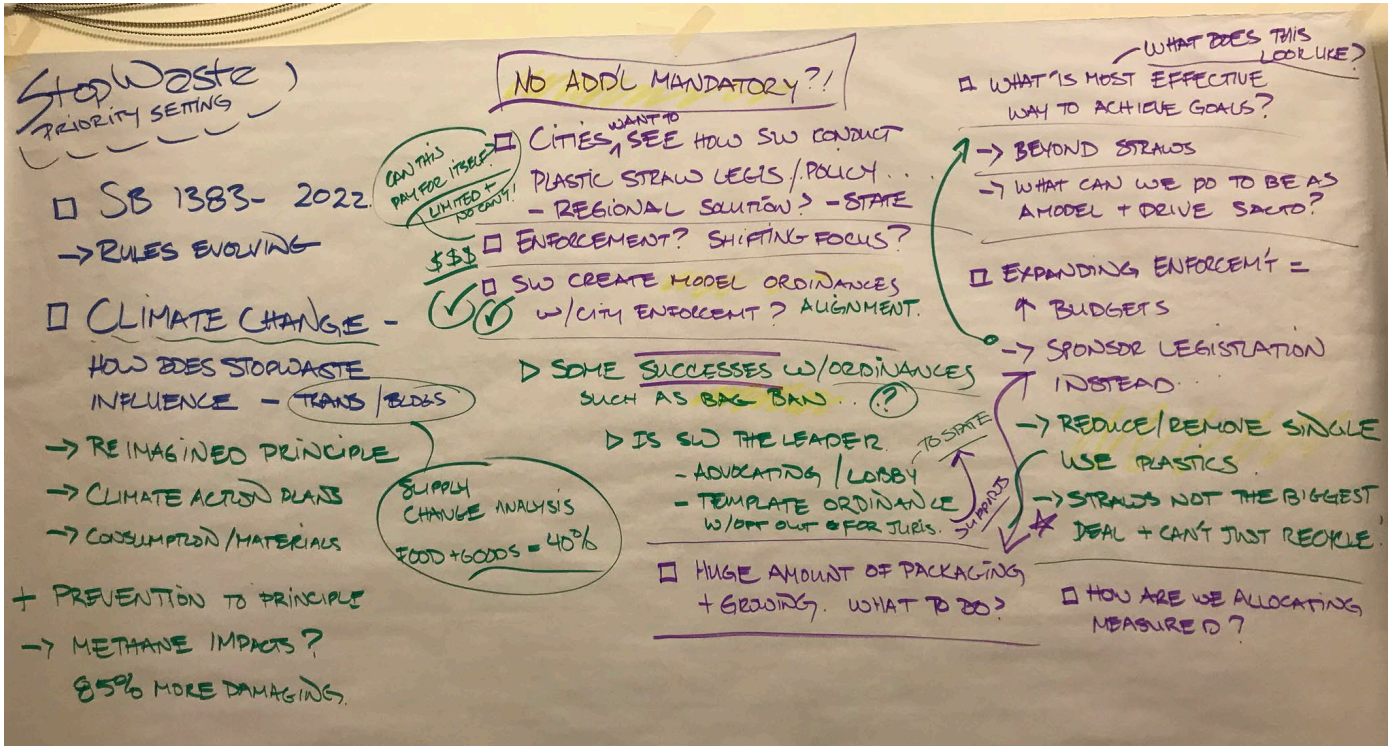 StopWaste
PRIORITY SETTING
□ SB 1383- 2022.
→ RULES EVOLVING
□ CLIMATE CHANGE -
HOW DOES STOPWASTE
INFLUENCE - TRANS / BLDGS
→ REIMAGINED PRINCIPLE
→ CLIMATE ACTION PLANS
→ CONSUMPTION/MATERIALS
+ PREVENTION TO PRINCIPLE
→ METHANE IMPACTS?
85% MORE DAMAGING.
SUPPLY
CHANGE ANALYSIS
FOOD + GOODS = 40%
NO ADD'L MANDATORY?!
CAN THIS
PAY FOR ITSELF?
LIMITED +
NO CAN'T!
$$$
WANT TO
□ CITIES ^ SEE HOW SW CONDUCT
PLASTIC STRAW LEGIS / POLICY...
- REGIONAL SOLUTION? - STATE
□ ENFORCEMENT? SHIFTING FOCUS?
□ SW CREATE MODEL ORDINANCES
W/CITY ENFORCEMT? ALIGNMENT.
▷ SOME SUCCESSES W/ORDINANCES
SUCH AS BAG BAN.. ?
▷ IS SW THE LEADER
- ADVOCATING / LOBBY
TO STATE
- TEMPLATE ORDINANCE
W/OPT OUT FOR JURIS.
SUPPORTS
□ HUGE AMOUNT OF PACKAGING
+ GROWING. WHAT TO DO?
WHAT DOES THIS
LOOK LIKE?
□ WHAT IS MOST EFFECTIVE
WAY TO ACHIEVE GOALS?
→ BEYOND STRAWS
→ WHAT CAN WE DO TO BE AS
A MODEL + DRIVE SACTO?
□ EXPANDING ENFORCEM'T =
↑ BUDGETS
→ SPONSOR LEGISTLATION
INSTEAD..
→ REDUCE/REMOVE SINGLE
USE PLASTICS.
→ STRAWS NOT THE BIGGEST
DEAL + CAN'T JUST RECYCLE!
□ HOW ARE WE ALLOCATING
MEASURE D?